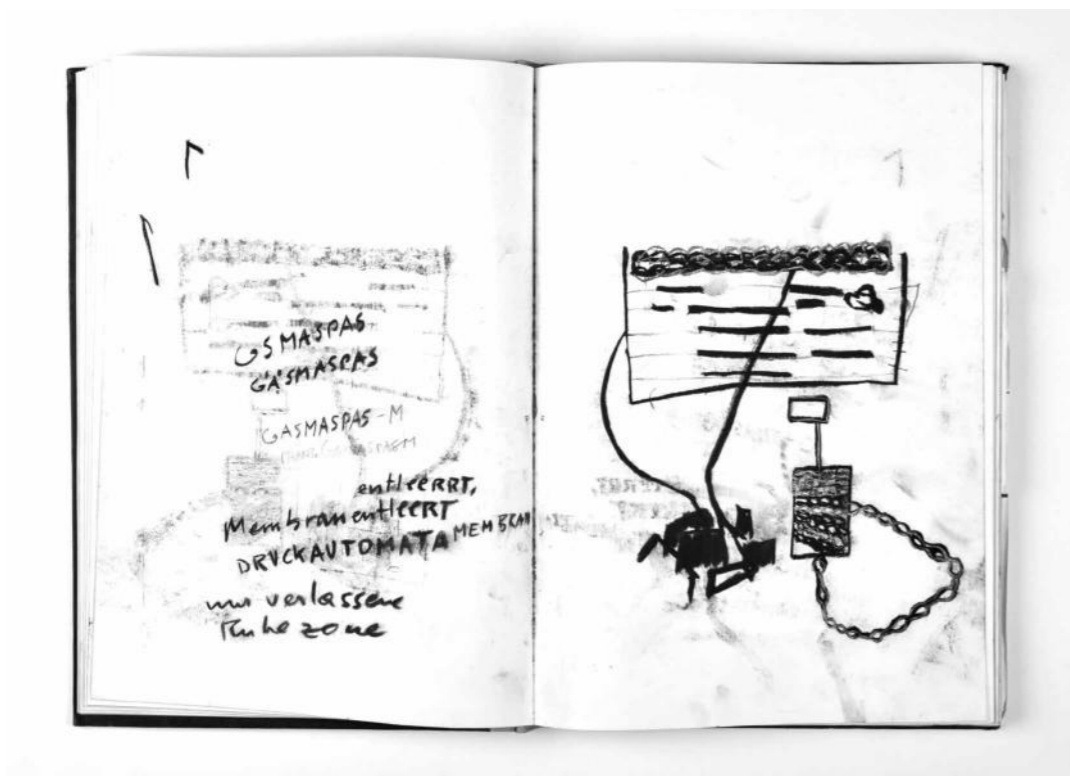 GSMASPAS
GASMASPAS
GASMASPAS-M
entlEERRT,
MembranentlEERT
DRUCKAUTOMATA MEMBRAN
nur verlassene
Ruhe zone